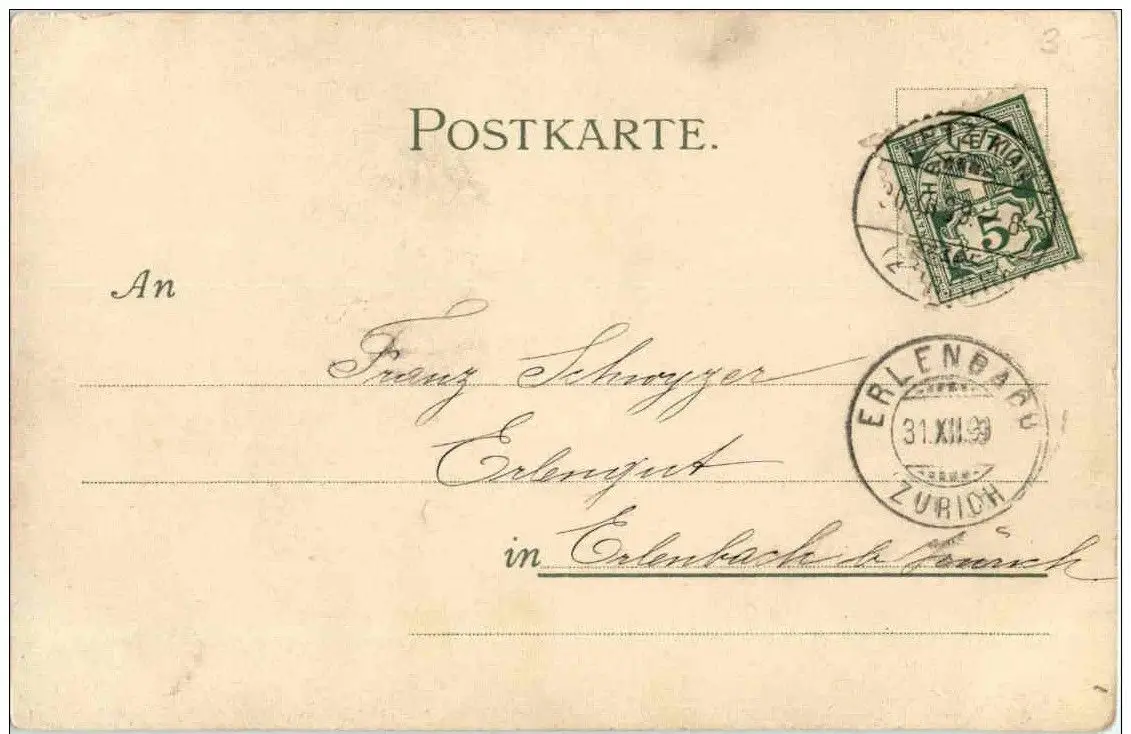 3
POSTKARTE.
5
An
Franz Schwyzer
ERLENBACH
31.XII.99
ZÜRICH
Erlengut
in Erlenbach b Zürich